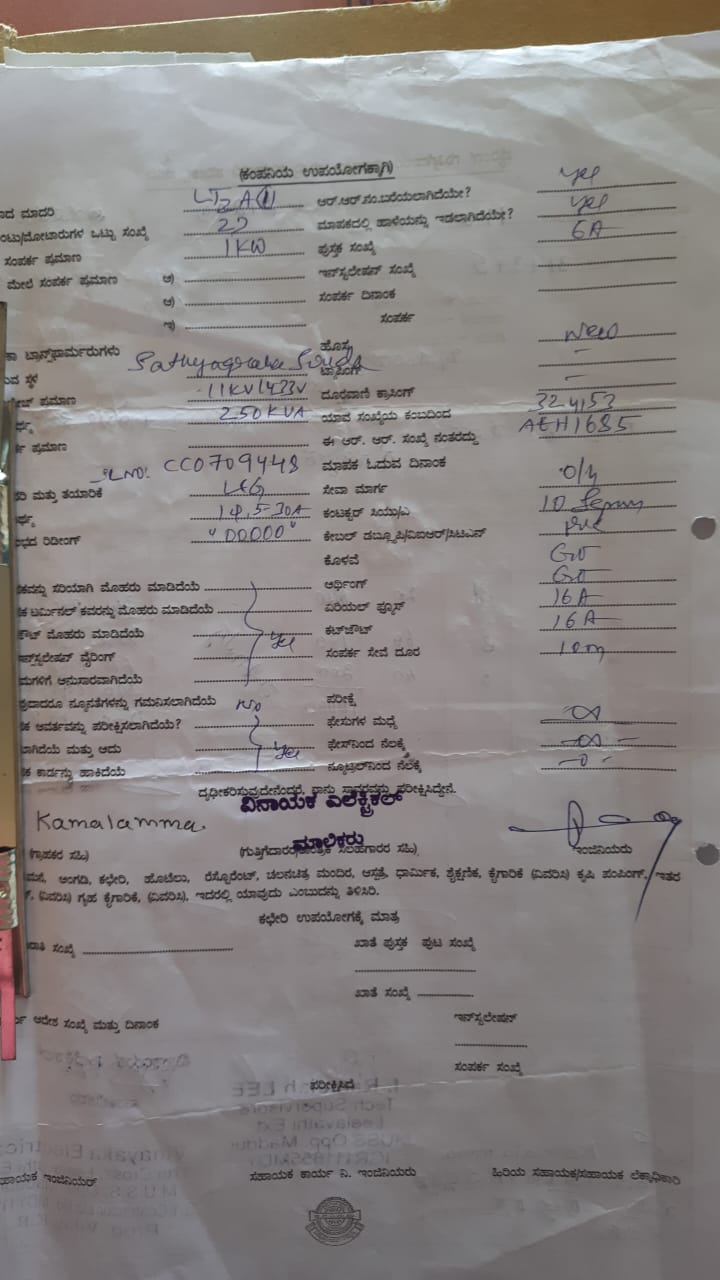 (ಕಂಪನಿಯ ಉಪಯೋಗಕ್ಕಾಗಿ)
ಮಾದರಿ ಆರ್.ಆರ್.ನಂ.ಬರೆಯಲಾಗಿದೆಯೇ? yes
ಒಟ್ಟು ಸಂಖ್ಯೆ 22 ಮಾಪಕದಲ್ಲಿ ಹಾಳೆಯನ್ನು ಇಡಲಾಗಿದೆಯೇ? yes
ಸಂಪರ್ಕ ಪ್ರಮಾಣ 1KW ಪುಸ್ತಕ ಸಂಖ್ಯೆ 6A
ಮೇಲೆ ಸಂಪರ್ಕ ಪ್ರಮಾಣ ಅ) ಇನ್‌ಸ್ಟಲೇಷನ್ ಸಂಖ್ಯೆ
ಆ) ಸಂಪರ್ಕ ದಿನಾಂಕ
ಇ) ಸಂಪರ್ಕ
ಟ್ರಾನ್ಸ್‌ಫಾರ್ಮರುಗಳು ಹೊಸ New
ಸ್ಥಳ Sathyagraha Souda ಟ್ಯಾಪಿಂಗ್ -
ಪ್ರಮಾಣ 11KV/433V ದೂರವಾಣಿ ಕ್ರಾಸಿಂಗ್ -
250KVA ಯಾವ ಸಂಖ್ಯೆಯ ಕಂಬದಿಂದ 324153
ಪ್ರಮಾಣ ಈ ಆರ್. ಆರ್. ಸಂಖ್ಯೆ ನಂತರದ್ದು AEH1685
SLNO: CC0709448 ಮಾಪಕ ಓದುವ ದಿನಾಂಕ
ಮತ್ತು ತಯಾರಿಕೆ L&G ಸೇವಾ ಮಾರ್ಗ O/H
ಕಂಟಕ್ಟರ್ ಸಿಯು/ಎ
ರೀಡಿಂಗ್ "00000" ಕೇಬಲ್ ಡಬ್ಲ್ಯೂಪಿ/ವಿಐಆರ್/ಸಿಟಿಎಸ್ pvc
ಕೊಳವೆ GI
ಸರಿಯಾಗಿ ಮೊಹರು ಮಾಡಿದೆಯೆ ಆರ್ಥಿಂಗ್ GI
ಟರ್ಮಿನಲ್ ಕವರನ್ನು ಮೊಹರು ಮಾಡಿದೆಯೆ ಏರಿಯಲ್ ಫ್ಯೂಸ್ 16A
ಮೊಹರು ಮಾಡಿದೆಯೆ yes ಕಟ್‌ಔಟ್ 16A
ವೈರಿಂಗ್ ಸಂಪರ್ಕ ಸೇವೆ ದೂರ 10m
ಅನುಸಾರವಾಗಿದೆಯೆ
ನ್ಯೂನತೆಗಳನ್ನು ಗಮನಿಸಲಾಗಿದೆಯೆ No ಪರೀಕ್ಷೆ
ಆವರ್ತವನ್ನು ಪರೀಕ್ಷಿಸಲಾಗಿದೆಯೆ? ಫೇಸುಗಳ ಮಧ್ಯೆ
ಮತ್ತು ಅದು yes ಫೇಸ್‌ನಿಂದ ನೆಲಕ್ಕೆ
ಕಾರ್ಡನ್ನು ಹಾಕಿದೆಯೆ ನ್ಯೂಟ್ರಲ್‌ನಿಂದ ನೆಲಕ್ಕೆ -0-
ದೃಢೀಕರಿಸುವುದೇನೆಂದರೆ, ನಾನು ಸ್ಥಾವರವನ್ನು ಪರೀಕ್ಷಿಸಿದ್ದೇನೆ.
ವಿನಾಯಕ ಎಲೆಕ್ಟ್ರಿಕಲ್
Kamalamma
ಮಾಲಿಕರು
(ಗ್ರಾಹಕರ ಸಹಿ) ಸಹಿ) ಇಂಜಿನಿಯರು
ಅಂಗಡಿ, ಕಛೇರಿ, ಹೊಟೆಲು, ರೆಸ್ಟೋರೆಂಟ್, ಚಲನಚಿತ್ರ ಮಂದಿರ, ಆಸ್ಪತ್ರೆ, ಧಾರ್ಮಿಕ, ಶೈಕ್ಷಣಿಕ, ಕೈಗಾರಿಕೆ (ವಿವರಿಸಿ) ಕೃಷಿ ಪಂಪಿಂಗ್, ಇತರ
(ವಿವರಿಸಿ) ಗೃಹ ಕೈಗಾರಿಕೆ, (ವಿವರಿಸಿ), ಇದರಲ್ಲಿ ಯಾವುದು ಎಂಬುದನ್ನು ತಿಳಿಸಿರಿ.
ಕಛೇರಿ ಉಪಯೋಗಕ್ಕೆ ಮಾತ್ರ
ಸಂಖ್ಯೆ ಖಾತೆ ಪುಸ್ತಕ ಪುಟ ಸಂಖ್ಯೆ
ಖಾತೆ ಸಂಖ್ಯೆ
ಆದೇಶ ಸಂಖ್ಯೆ ಮತ್ತು ದಿನಾಂಕ ಇನ್‌ಸ್ಟಲೇಷನ್
ಸಂಪರ್ಕ ಸಂಖ್ಯೆ
ಪರೀಕ್ಷಿಸಿದೆ
ಸಹಾಯಕ ಇಂಜಿನಿಯರ್ ಸಹಾಯಕ ಕಾರ್ಯ ನಿ. ಇಂಜಿನಿಯರು ಹಿರಿಯ ಸಹಾಯಕ/ಸಹಾಯಕ ಲೆಕ್ಕಾಧಿಕಾರಿ